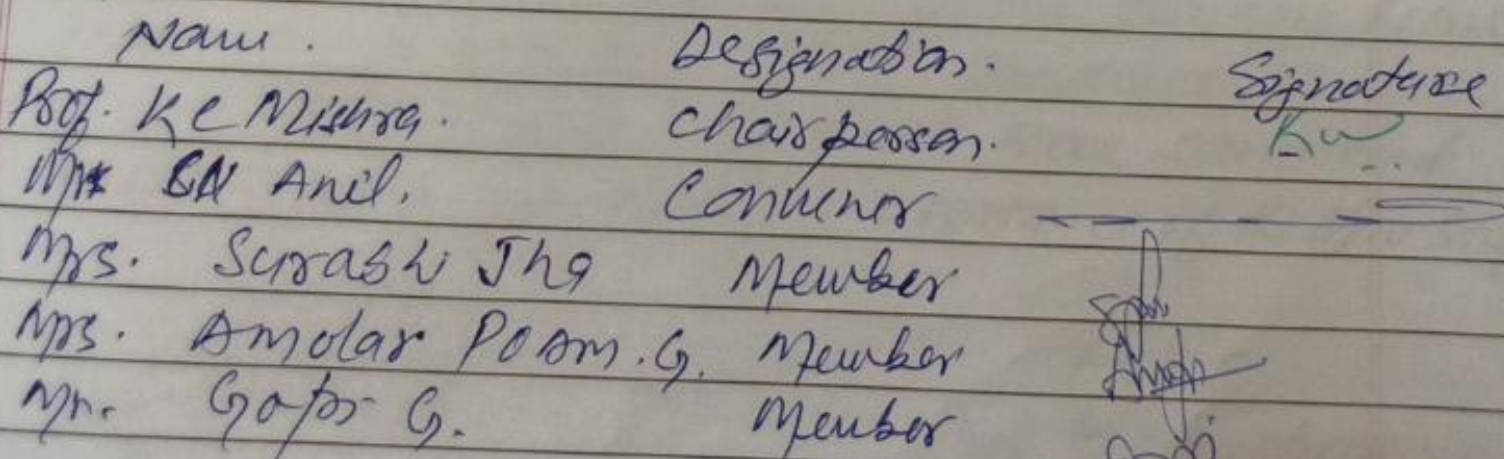 Name. Designation. Signature
Prof. K C Mishra. Chairperson.
BN Anil. Convenor
Mrs. Surabhi Jha Member
Mrs. Member
Mr. G. Member